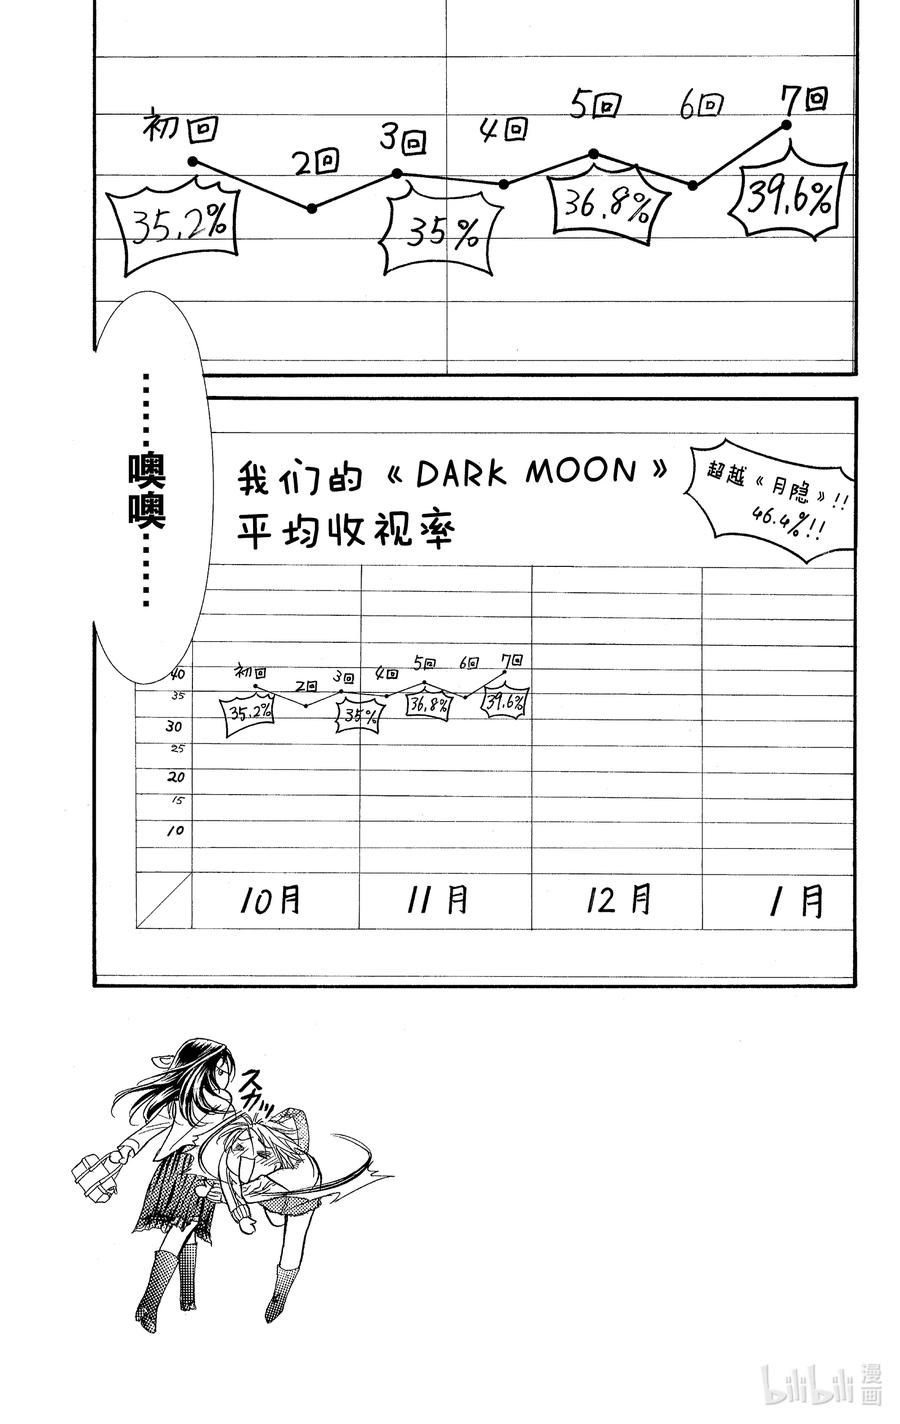 初回
2回
3回
4回
5回
6回
7回
35.2%
35%
36.8%
39.6%
………噢噢………
我们的《DARK MOON》
平均收视率
超越《月隐》!!
46.4%!!
初回
2回
3回
4回
5回
6回
7回
35.2%
35%
36.8%
39.6%
40
35
30
25
20
15
10
10月
11月
12月
1月
スカッ
bilibili 漫画